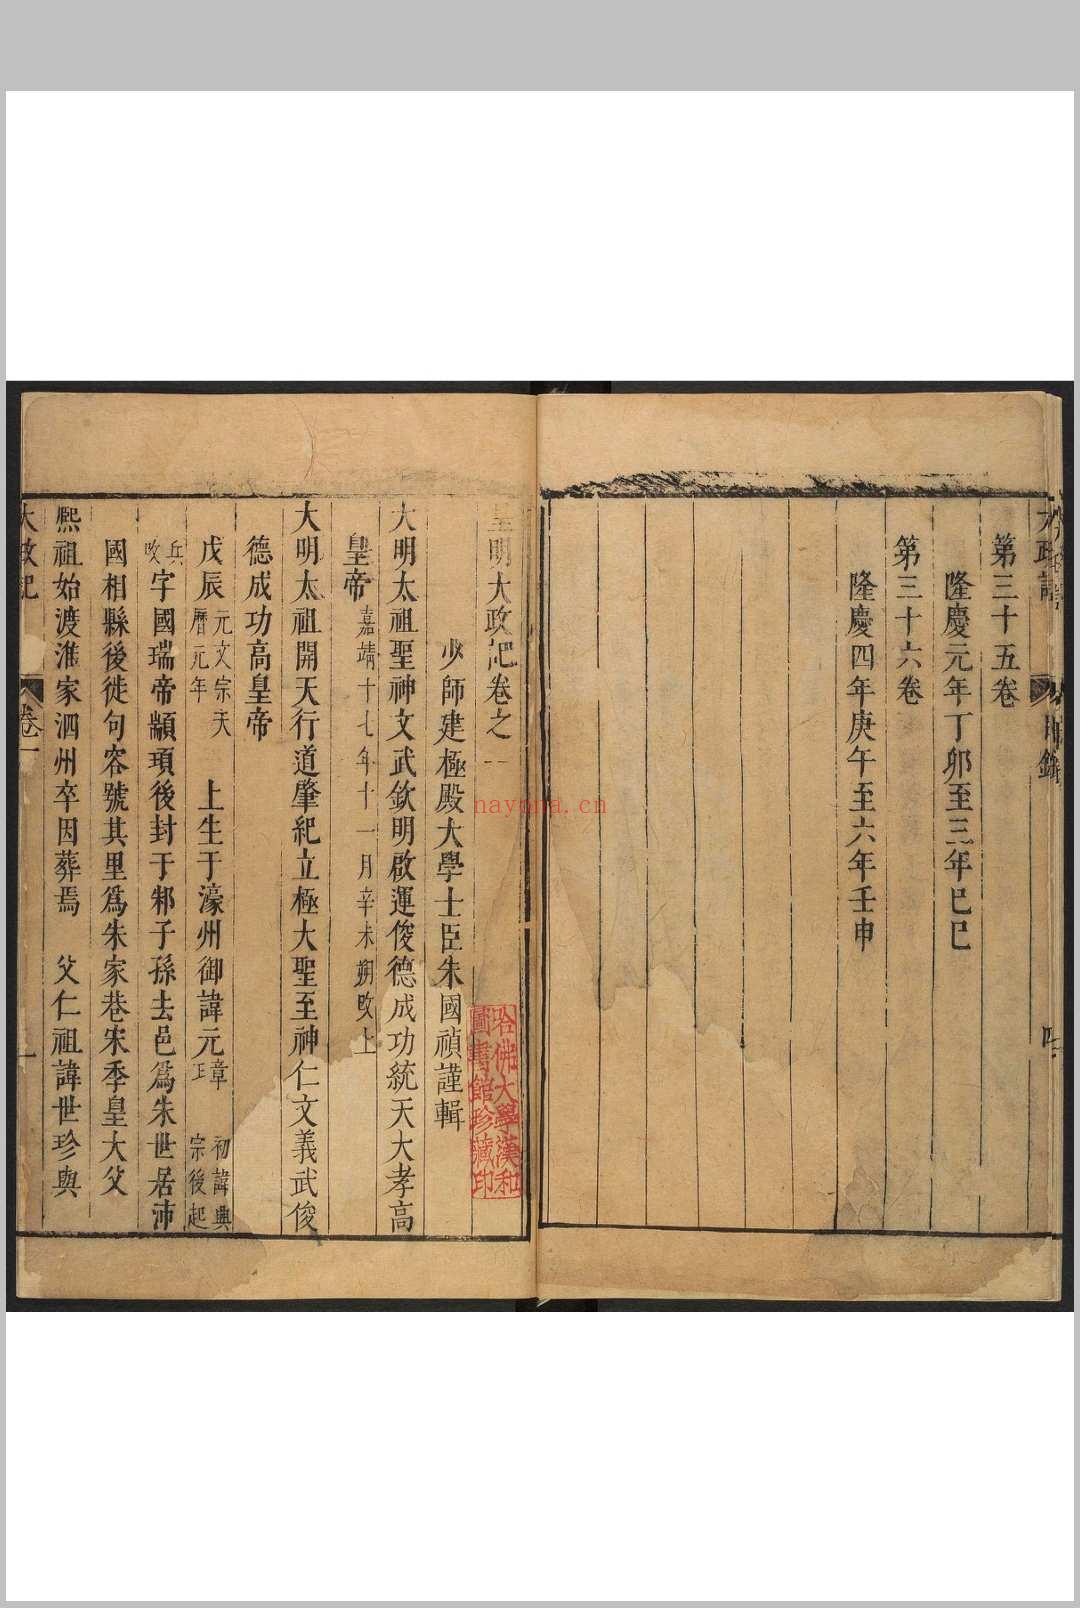 大政記
目錄
第三十五卷
隆慶元年丁卯至三年己巳
第三十六卷
隆慶四年庚午至六年壬申
皇明大政記卷之一
少師建極殿大學士臣朱國禎謹輯
大明太祖聖神文武欽明啟運俊德成功統天大孝高
皇帝嘉靖十七年十一月辛未朔改上
大明太祖開天行道肇紀立極大聖至神仁文義武俊
德成功高皇帝
戊辰元文宗天曆元年 上生于濠州御諱元璋初諱興宗後起
兵改字國瑞帝顓頊後封于邾子孫去邑爲朱世居沛
國相縣後徙句容號其里爲朱家巷宋季皇大父
熙祖始渡淮家泗州卒因葬焉 父仁祖諱世珍與
大政記
卷一
一
哈佛大學漢和
圖書館珍藏印
nayona.cn